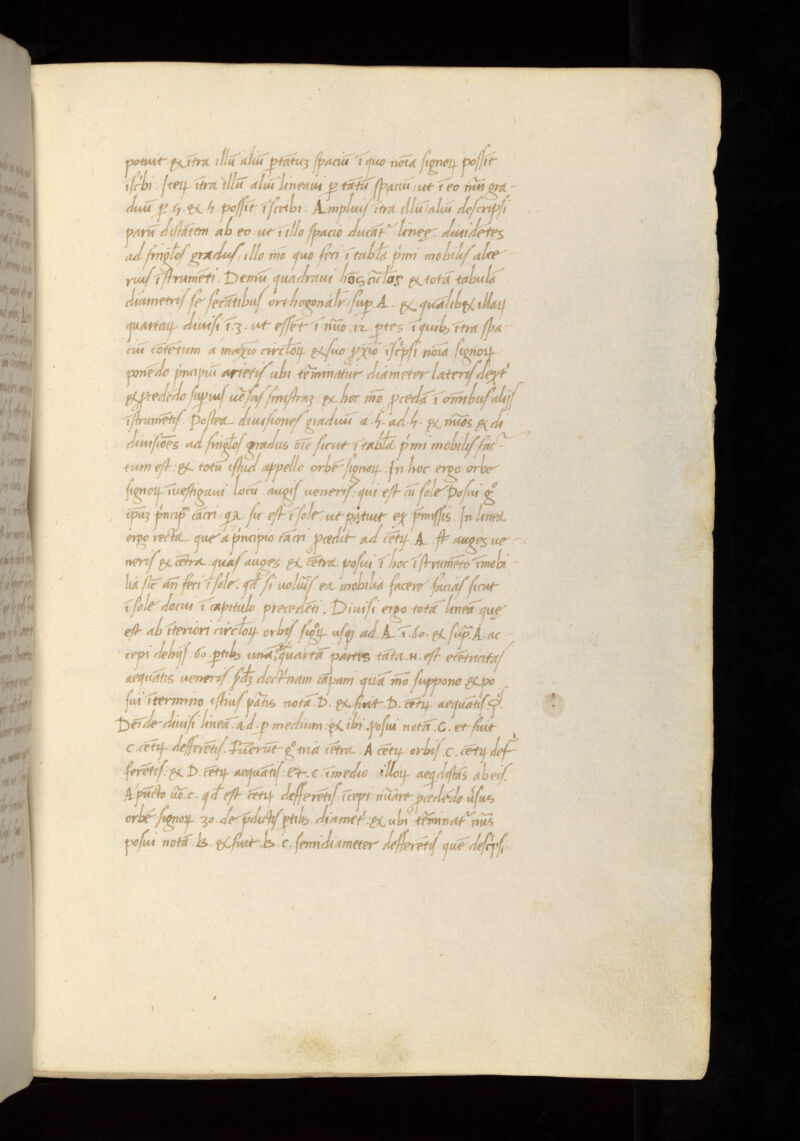 potuit et ītra illū aliū p̄tātuȝ spaciū ī quo noīa signoꝝ possīt
īscbi. Iteꝝ ītra illū aliū lineavi p tātū spaciū, ut ī eo nūri gra-
duū p. 5. et 5. possīt īscribi. Amplius ītra illū aliū descripsi
parū distātem ab eo. ut ī illo spacio ducāt᷑ lineę dividētes
ad singl̄os gradus, illo mō quo feci ī tabl̄a p̄mi mobilis alte
rius īstrumēti. Demū quadravi hōs circl̄os et totā tabulā
diametris se secātibus orthogonalr̄ sup̄. A. et qualibet illaꝝ
quartaꝝ divisi ī. 3. ut essēt ī nūo. 12. p̄tes ī quibꝫ ītra spa-
ciū cōtētum a maxīo circl̄oꝝ et suo pxīo īscpsi noīa signoꝝ.
ponēdo pncipiū arietis ubi termīnat᷑ diameter lateris dext̄
et pcedēdo supius versus sinistraȝ et hoc mō pcedā ī omnibus aliis
īstrumētis. Postea divisiones graduū a. 5. ad. 5. et nūos et di
divisiōes ad singl̄os gradus oīe sicut ī tabl̄a p̄mi mobilis fac-
tum est. et totū istud appello orbē signoꝝ. In hoc ergo orbe
signoꝝ īvestigavi locū augis veneris. qui est cū sole Posui gͦ
ipuȝ pncipō cācri. qꝛ sic est ī sole, ut patuit ex pmissis. In linea
ergo recta que a pncipio cācri pcedit ad cētꝝ A. st auges ve-
neris et cētra quas auges et cētra posui ī hoc īstrumēto īmobi-
lia sic̄ an̄ feci ī sole. qd̄ si voluis ea mobilia facere facias sicut
ī sole docui ī capitulo precedēti. Divisi ergo totā linea que
est ab īteriori circl̄oꝝ orbis sigoꝝ usqꝫ ad. A. ī. 60. et sup̄. A. ac-
cepi de hijs. 60. ptibꝫ unā. et quartā partis tāta. n. est ecētricitas
aequātis veneris scd̄ȝ doctrīnam cāpam quā mō suppono et po
sui ī termino istius p̄tis notā D. et fuit. D. cētꝝ aequātis ♀.
Deīde divisi lineā. a. d. p medium et ibi posui notā. C. et fuit
C. cētꝝ defferētis. Fuerūt gͦ tria cētra. A cētꝝ orbis c. cētꝝ def-
ferētis. et D. cētꝝ aequātis. et. c. ī medio illoꝝ aeqdistās ab eis.
A pūcto vͦo. c. qd̄ est cētꝝ defferētis īcepi nūare pcedēdo v̄sus
orbē signoꝝ 30. de p̄dictis ptibꝫ diametri et ubi termīnat᷑ nūs
posui notā. B. et fuit. B. C. semidiameter defferētis que descpsi